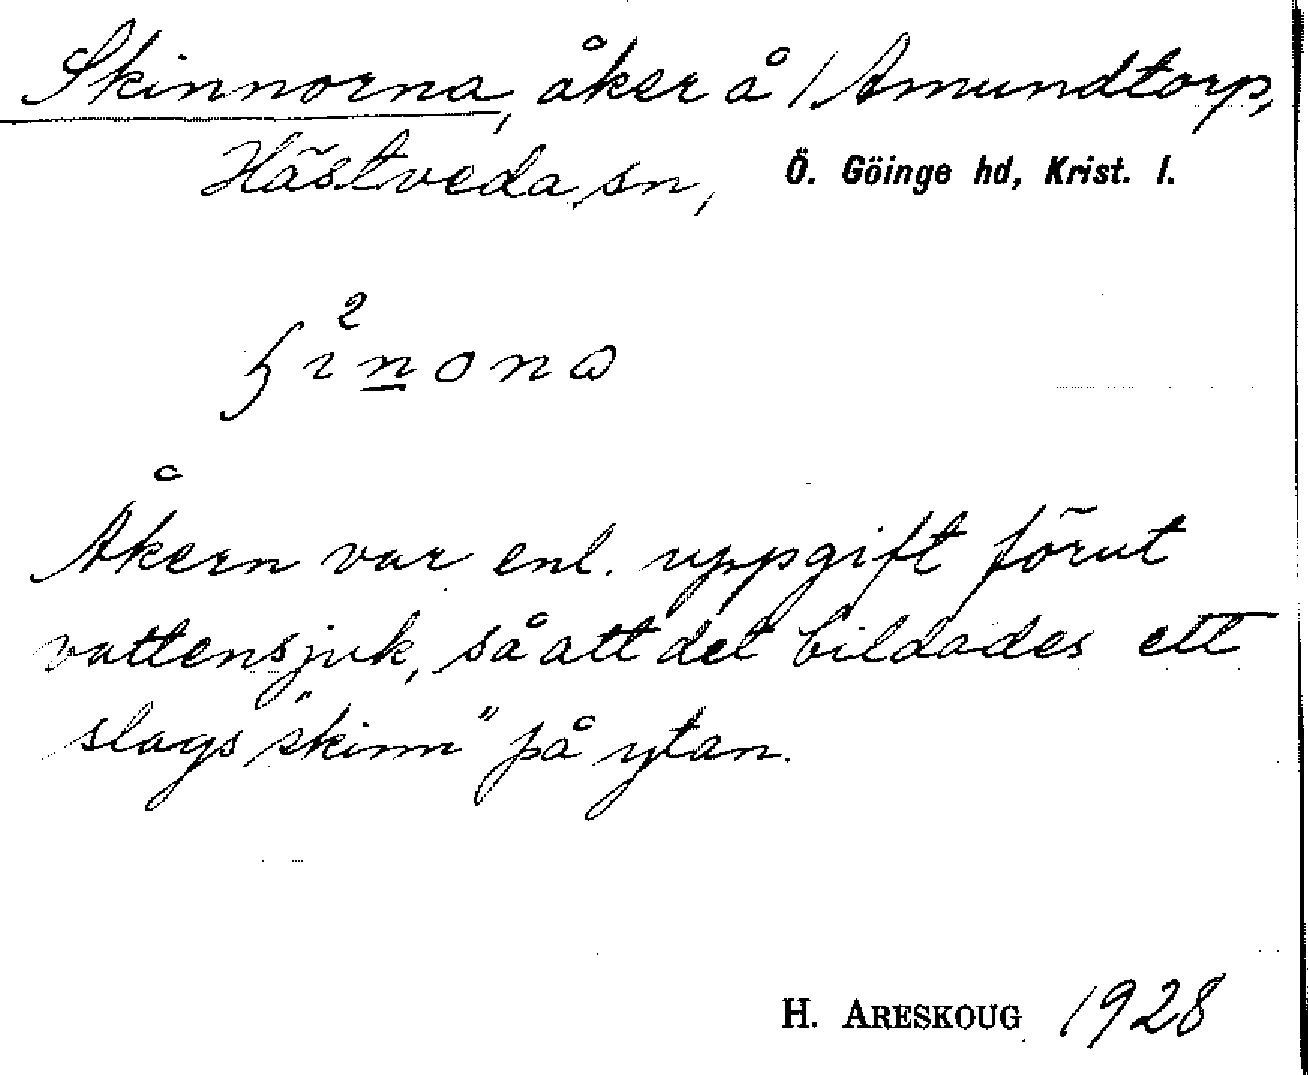 Skinnorna, åker å / Amundtorp,
Hästveda sn, Ö. Göinge hd, Krist. l.
Åkern var enl. uppgift förut
vattensjuk, så att det bildades ett
slags "skinn" på ytan.
H. ARESKOUG 1928